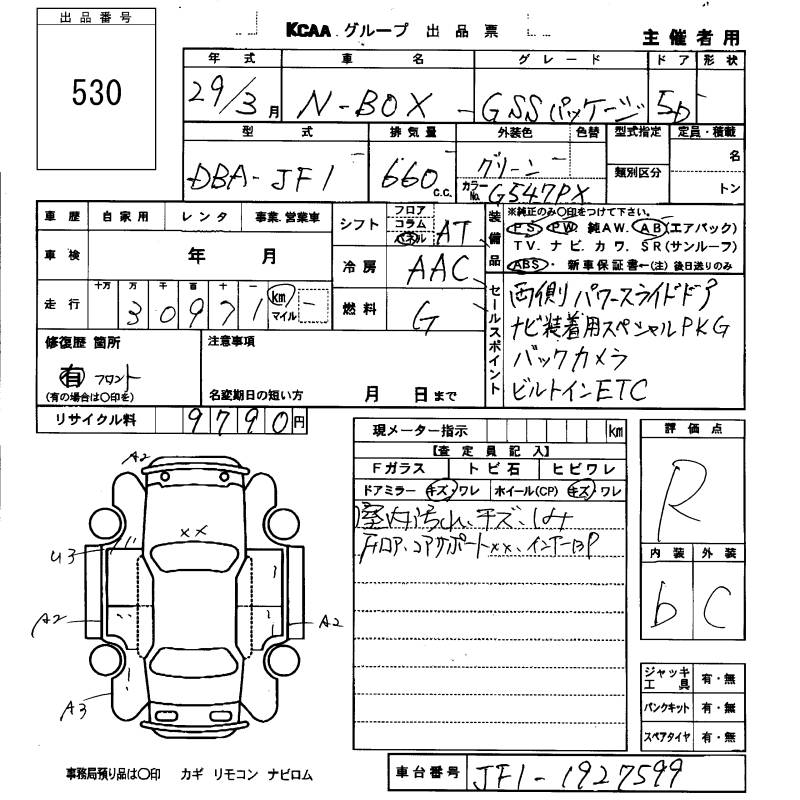 出品番号
530
KCAA グループ 出品票
主催者用
年式 車名 グレード ドア 形状
29/3月 N-BOX GSSパッケージ 5D
型式 排気量 外装色 色替 型式指定 定員・積載
DBA-JF1 660c.c. グリーン 名
カラーNo. G547PX 類別区分 トン
車歴 自家用 レンタ 事業.営業車
シフト フロア コラム インパネ AT
装備品
※純正のみ○印をつけて下さい。
PS. PW. 純AW. AB(エアバック)
TV. ナビ. カワ. SR(サンルーフ)
ABS. 新車保証書←(注)後日送りのみ
車検 年 月
冷房 AAC
走行 十万 万 千 百 十 一
30971 km マイル
燃料 G
セールスポイント
両側パワースライドドア
ナビ装着用スペシャルPKG
バックカメラ
ビルトインETC
修復歴 箇所
有 フロント
(有の場合は○印を)
注意事項
名変期日の短い方 月 日まで
リサイクル料 9790円
現メーター指示 km
【査定員記入】
Fガラス トビ石 ヒビワレ
ドアミラー キズ・ワレ ホイール(CP) キズ・ワレ
室内汚れ、キズ、しみ
Fロア、コアサポートxx、インナーBP
評価点
R
内装 外装
b C
ジャッキ工具 有・無
パンクキット 有・無
スペアタイヤ 有・無
A2
xx
U3
A2
A2
A3
事務局預り品は○印 カギ リモコン ナビロム
車台番号 JF1-1927599